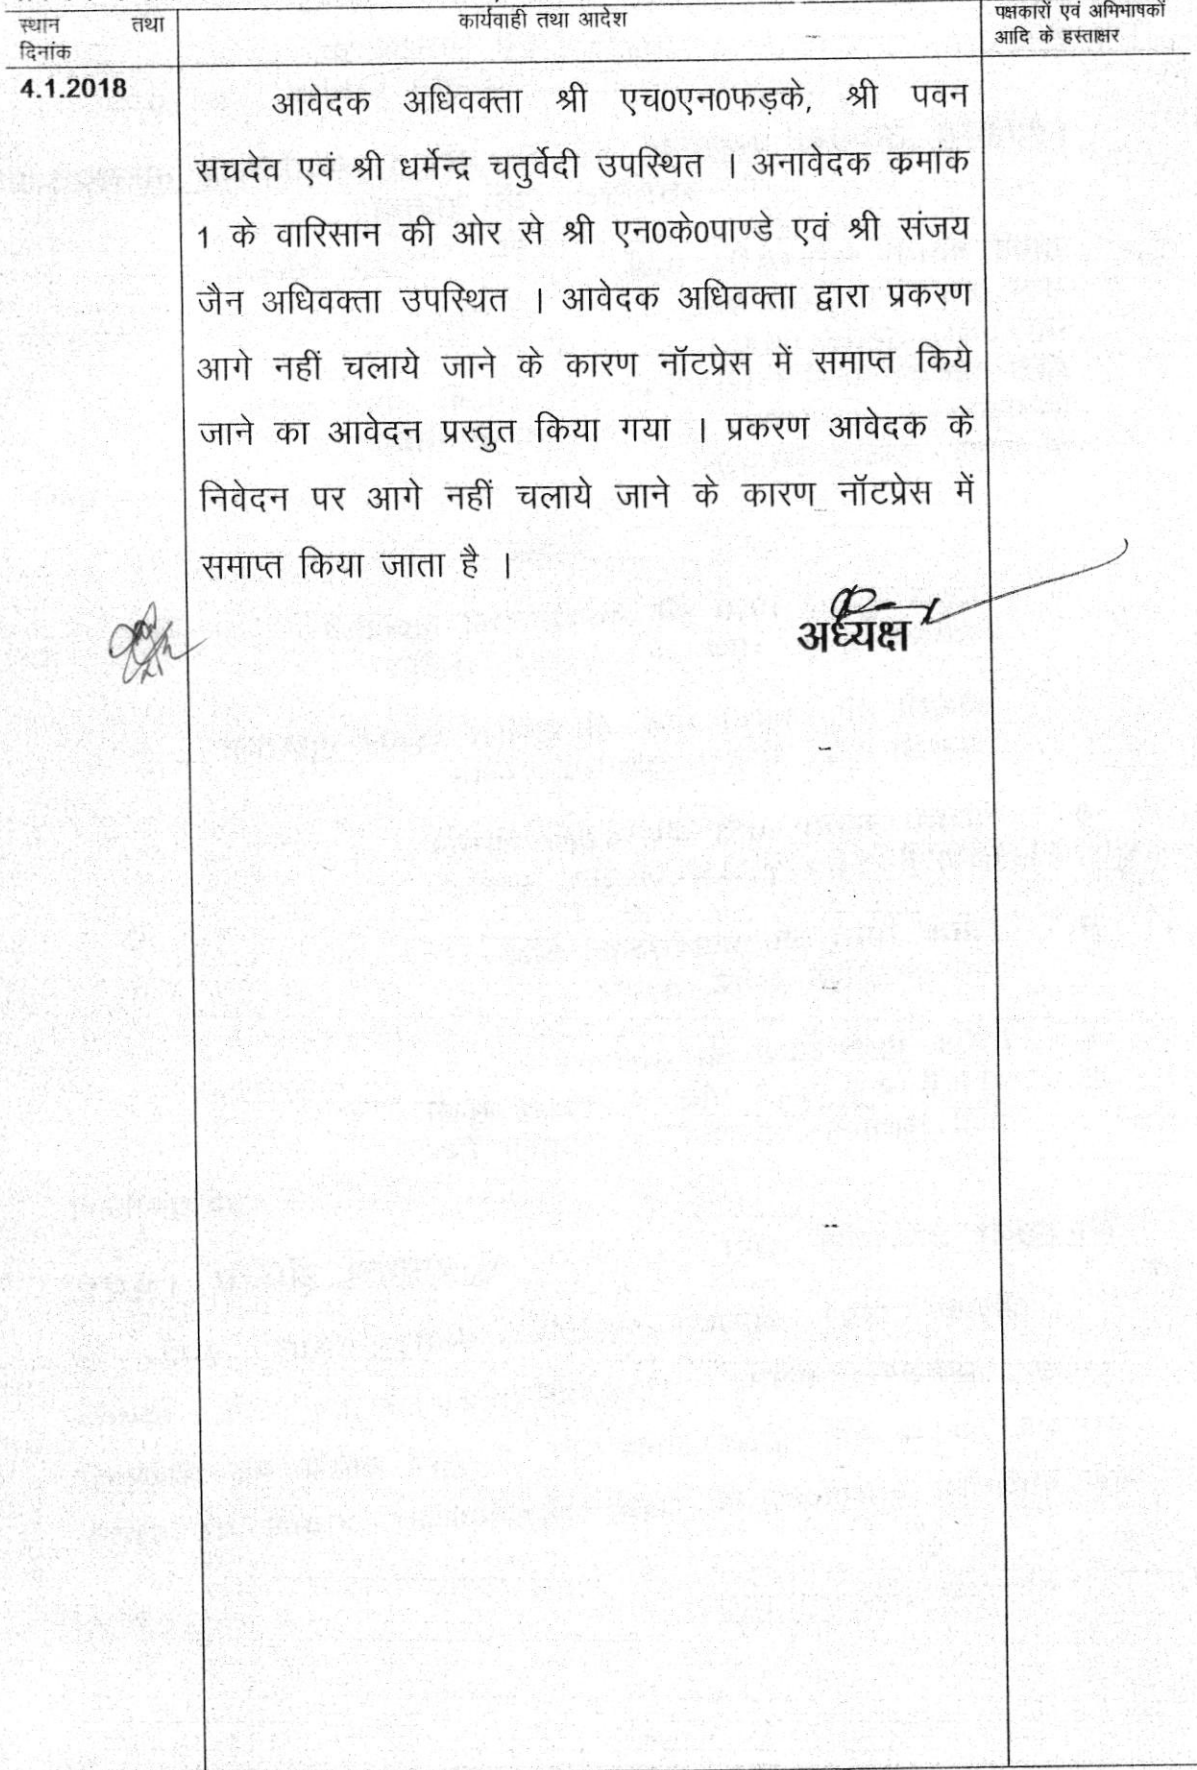 स्थान तथा
दिनांक
कार्यवाही तथा आदेश
पक्षकारों एवं अभिभाषकों
आदि के हस्ताक्षर
4.1.2018
आवेदक अधिवक्ता श्री एच0एन0फड़के, श्री पवन
सचदेव एवं श्री धर्मेन्द्र चतुर्वेदी उपस्थित । अनावेदक कमांक
1 के वारिसान की ओर से श्री एन0के0पाण्डे एवं श्री संजय
जैन अधिवक्ता उपस्थित । आवेदक अधिवक्ता द्वारा प्रकरण
आगे नहीं चलाये जाने के कारण नॉटप्रेस में समाप्त किये
जाने का आवेदन प्रस्तुत किया गया । प्रकरण आवेदक के
निवेदन पर आगे नहीं चलाये जाने के कारण नॉटप्रेस में
समाप्त किया जाता है ।
अध्यक्ष